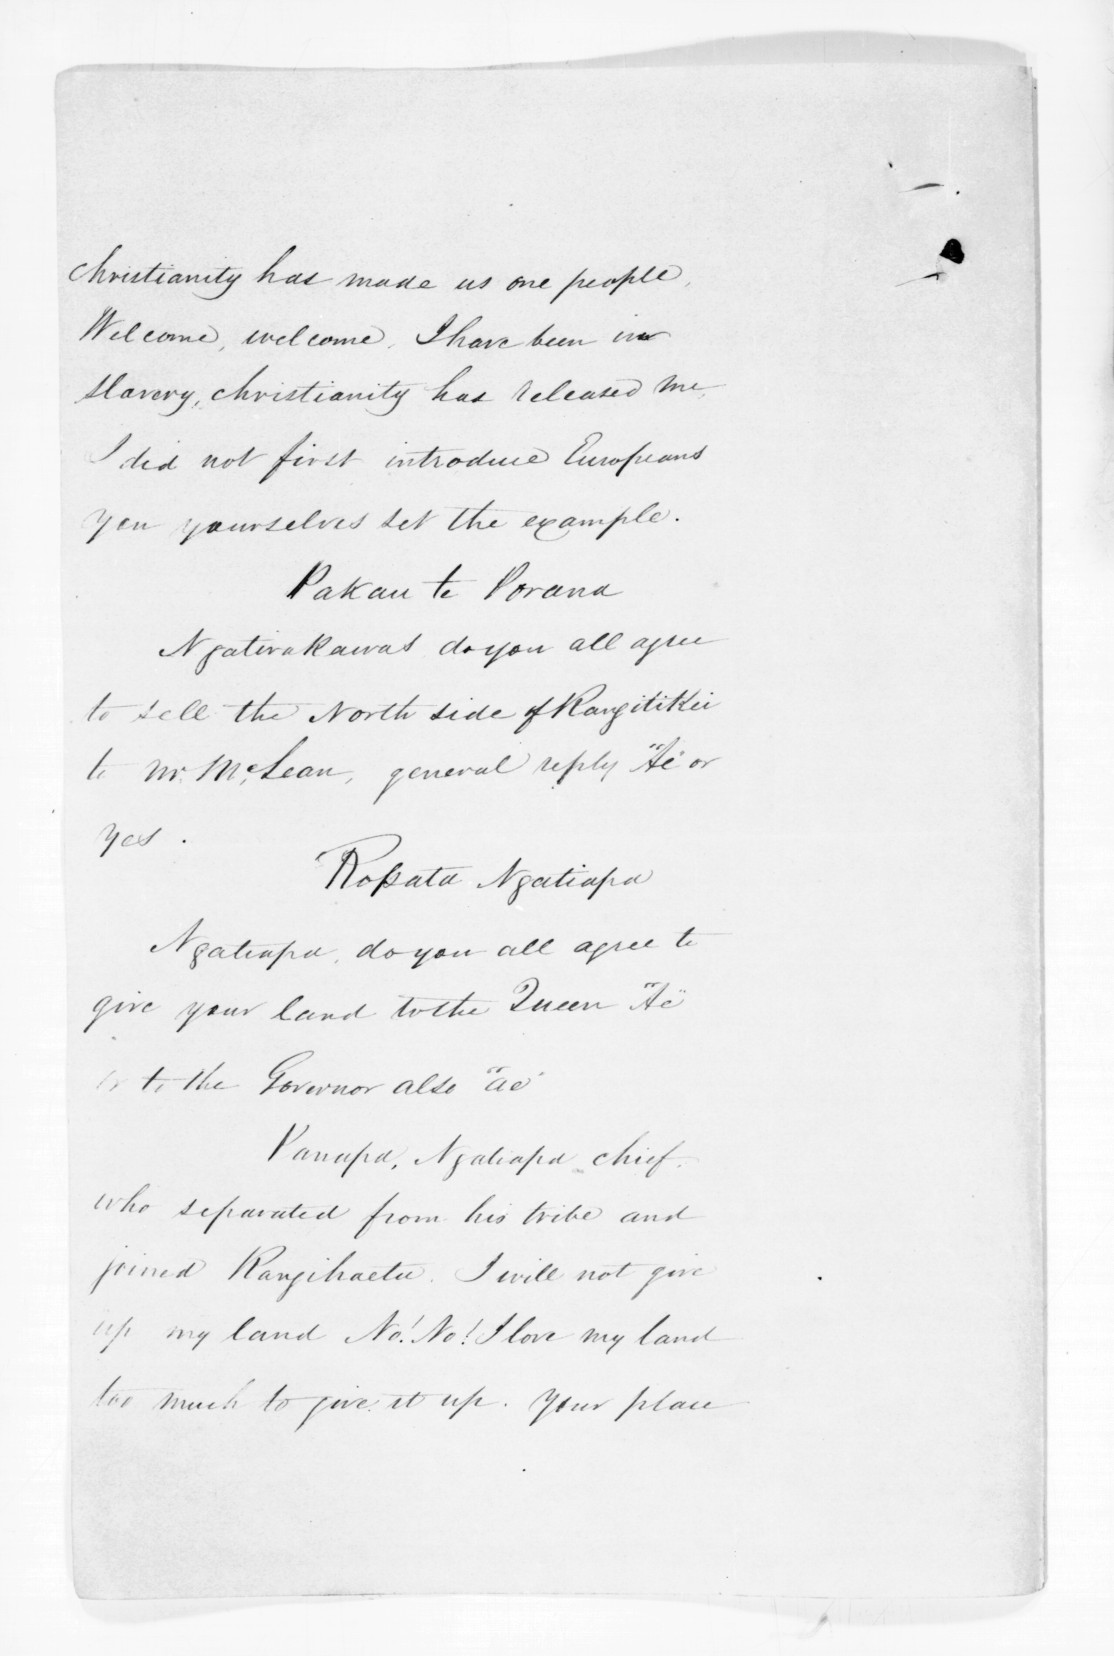 christianity has made us one people,
Welcome, welcome. I have been in
slavery, christianity has released me,
I did not first introduce Europeans
you yourselves set the example.
Pakau te Porana
Ngatirakawas do you all agree
to sell the North side of Rangitikei
to Mr. McLean, general reply "Ae" or
yes.
Ropata Ngatiapa
Ngatiapa, do you all agree to
give your land to the Queen "Ae"
or to the Governor also "ae"
Panapa, Ngatiapa chief.
who separated from his tribe and
joined Rangihaeta. I will not give
up my land No! No! I love my land
too much to give it up. Your place